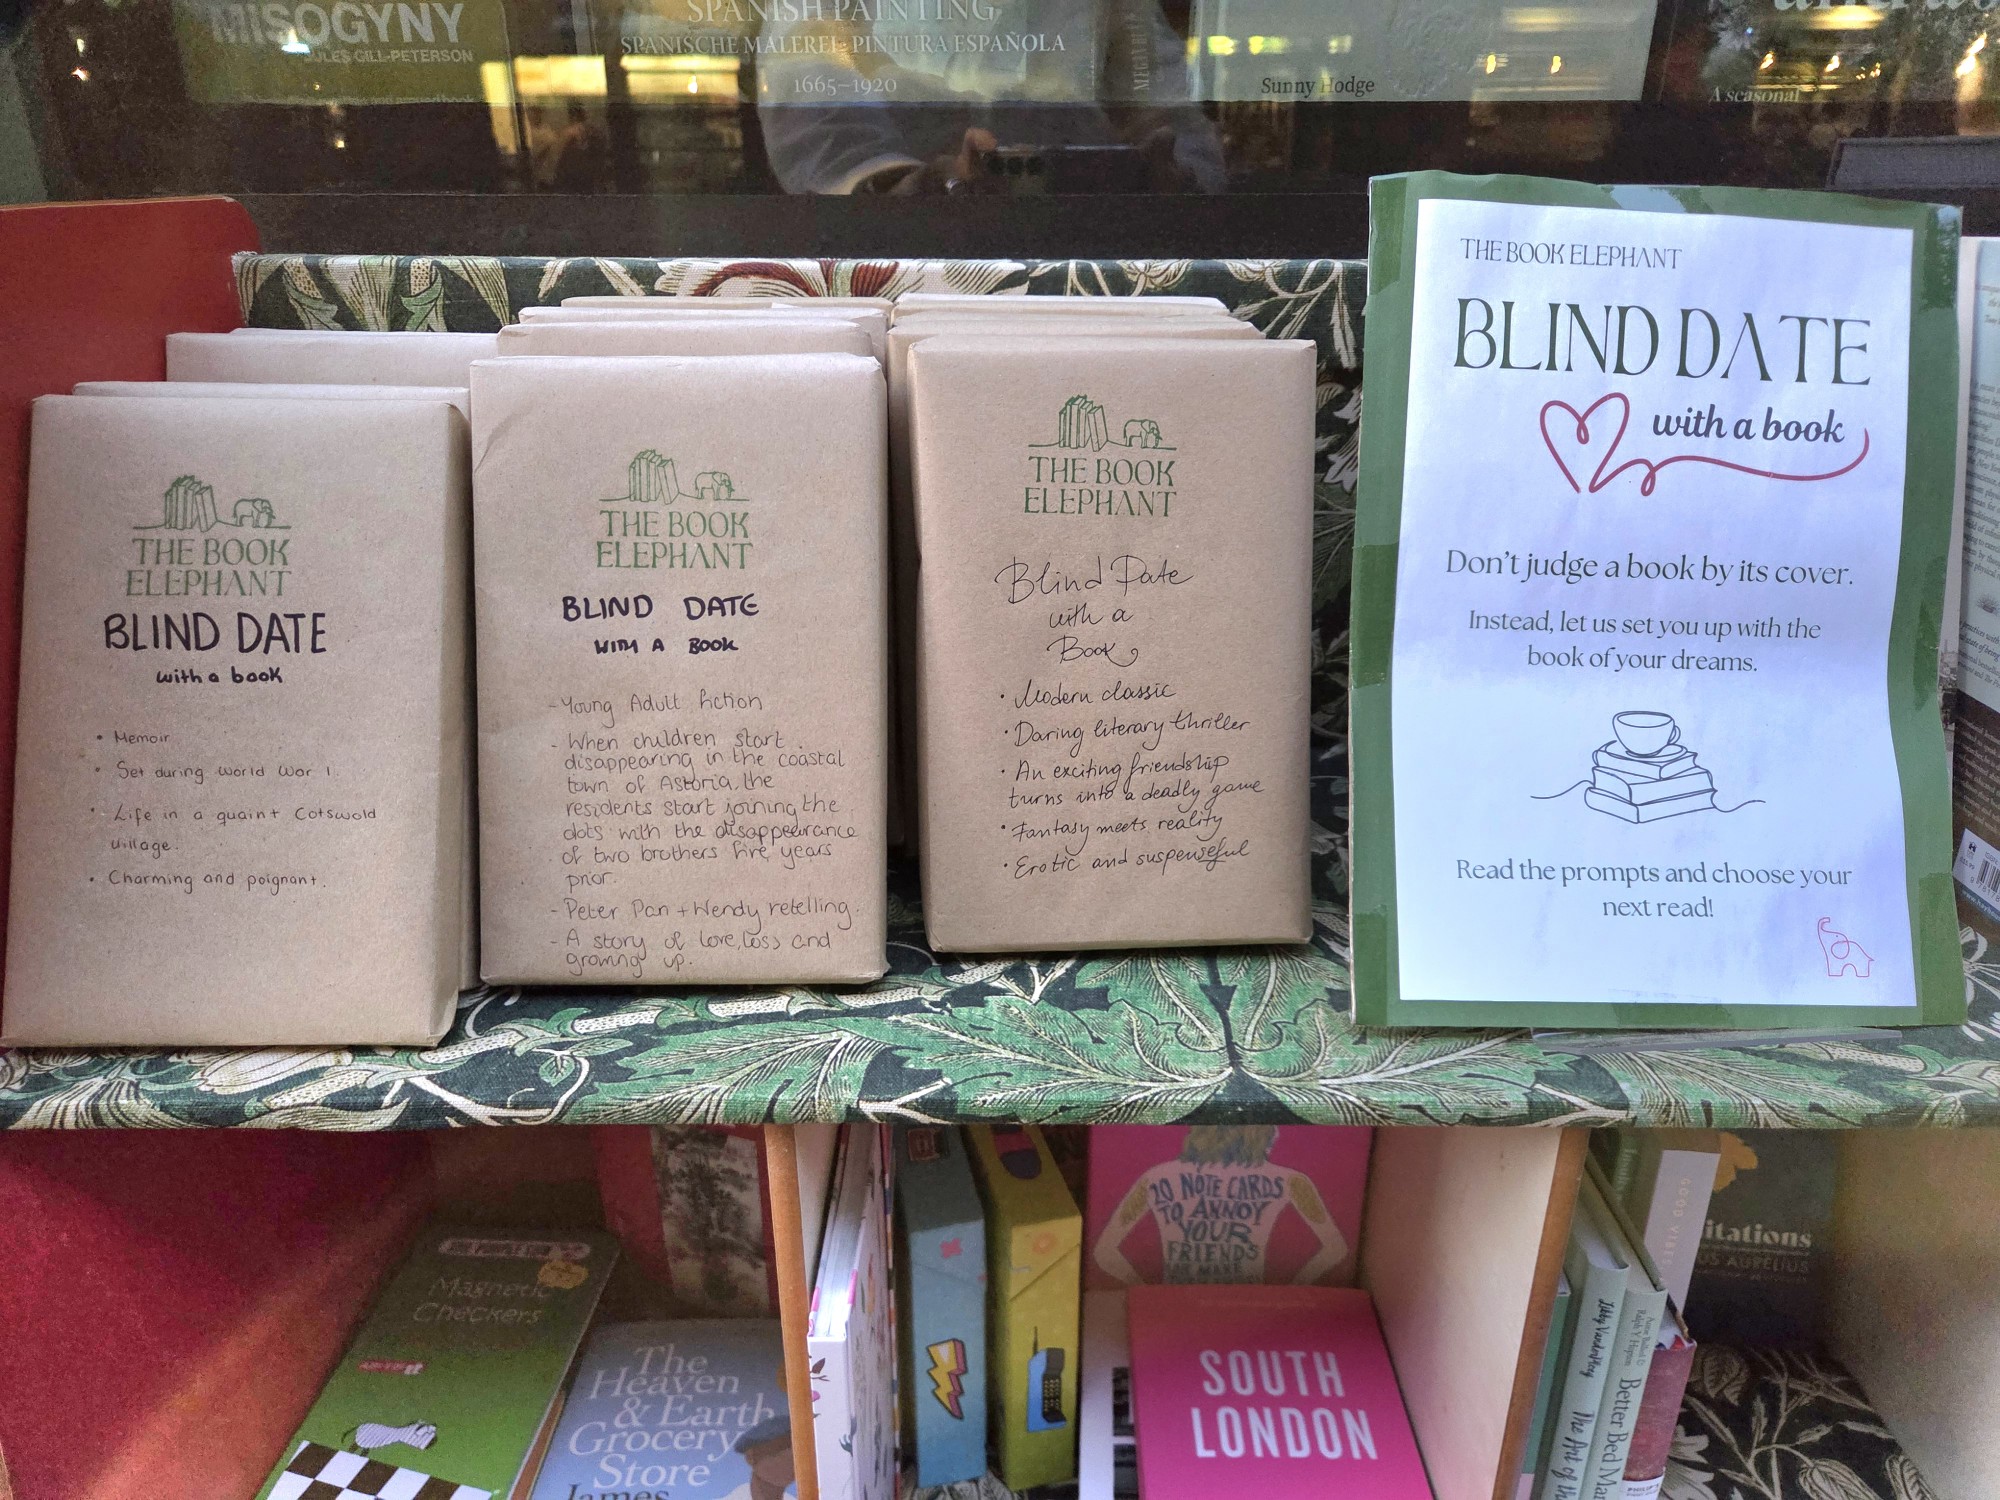 MISOGYNY
JULES GILL-PETERSON
SPANISH PAINTING
SPANISCHE MALEREI · PINTURA ESPAÑOLA
1665–1920
Sunny Hodge
A seasonal
THE BOOK
ELEPHANT
BLIND DATE
with a book
• Memoir
• Set during World War 1.
• Life in a quaint Cotswold
village.
• Charming and poignant.
THE BOOK
ELEPHANT
BLIND DATE
WITH A BOOK
- Young Adult fiction
- When children start
disappearing in the coastal
town of Astoria, the
residents start joining the
dots with the disappearance
of two brothers five years
prior.
- Peter Pan + Wendy retelling.
- A story of love, loss and
growing up.
THE BOOK
ELEPHANT
Blind Date
with a
Book
• Modern classic
• Daring literary thriller
• An exciting friendship
turns into a deadly game
• Fantasy meets reality
• Erotic and suspenseful
THE BOOK ELEPHANT
BLIND DATE
with a book
Don't judge a book by its cover.
Instead, let us set you up with the
book of your dreams.
Read the prompts and choose your
next read!
Magnetic
Checkers
The
Heaven
& Earth
Grocery
Store
James
20 NOTE CARDS
TO ANNOY
YOUR
FRIENDS
SOUTH
LONDON
Libby VanderPloeg
The Art of
Better Bed Ma
GOOD VIBES
itations
US AURELIUS